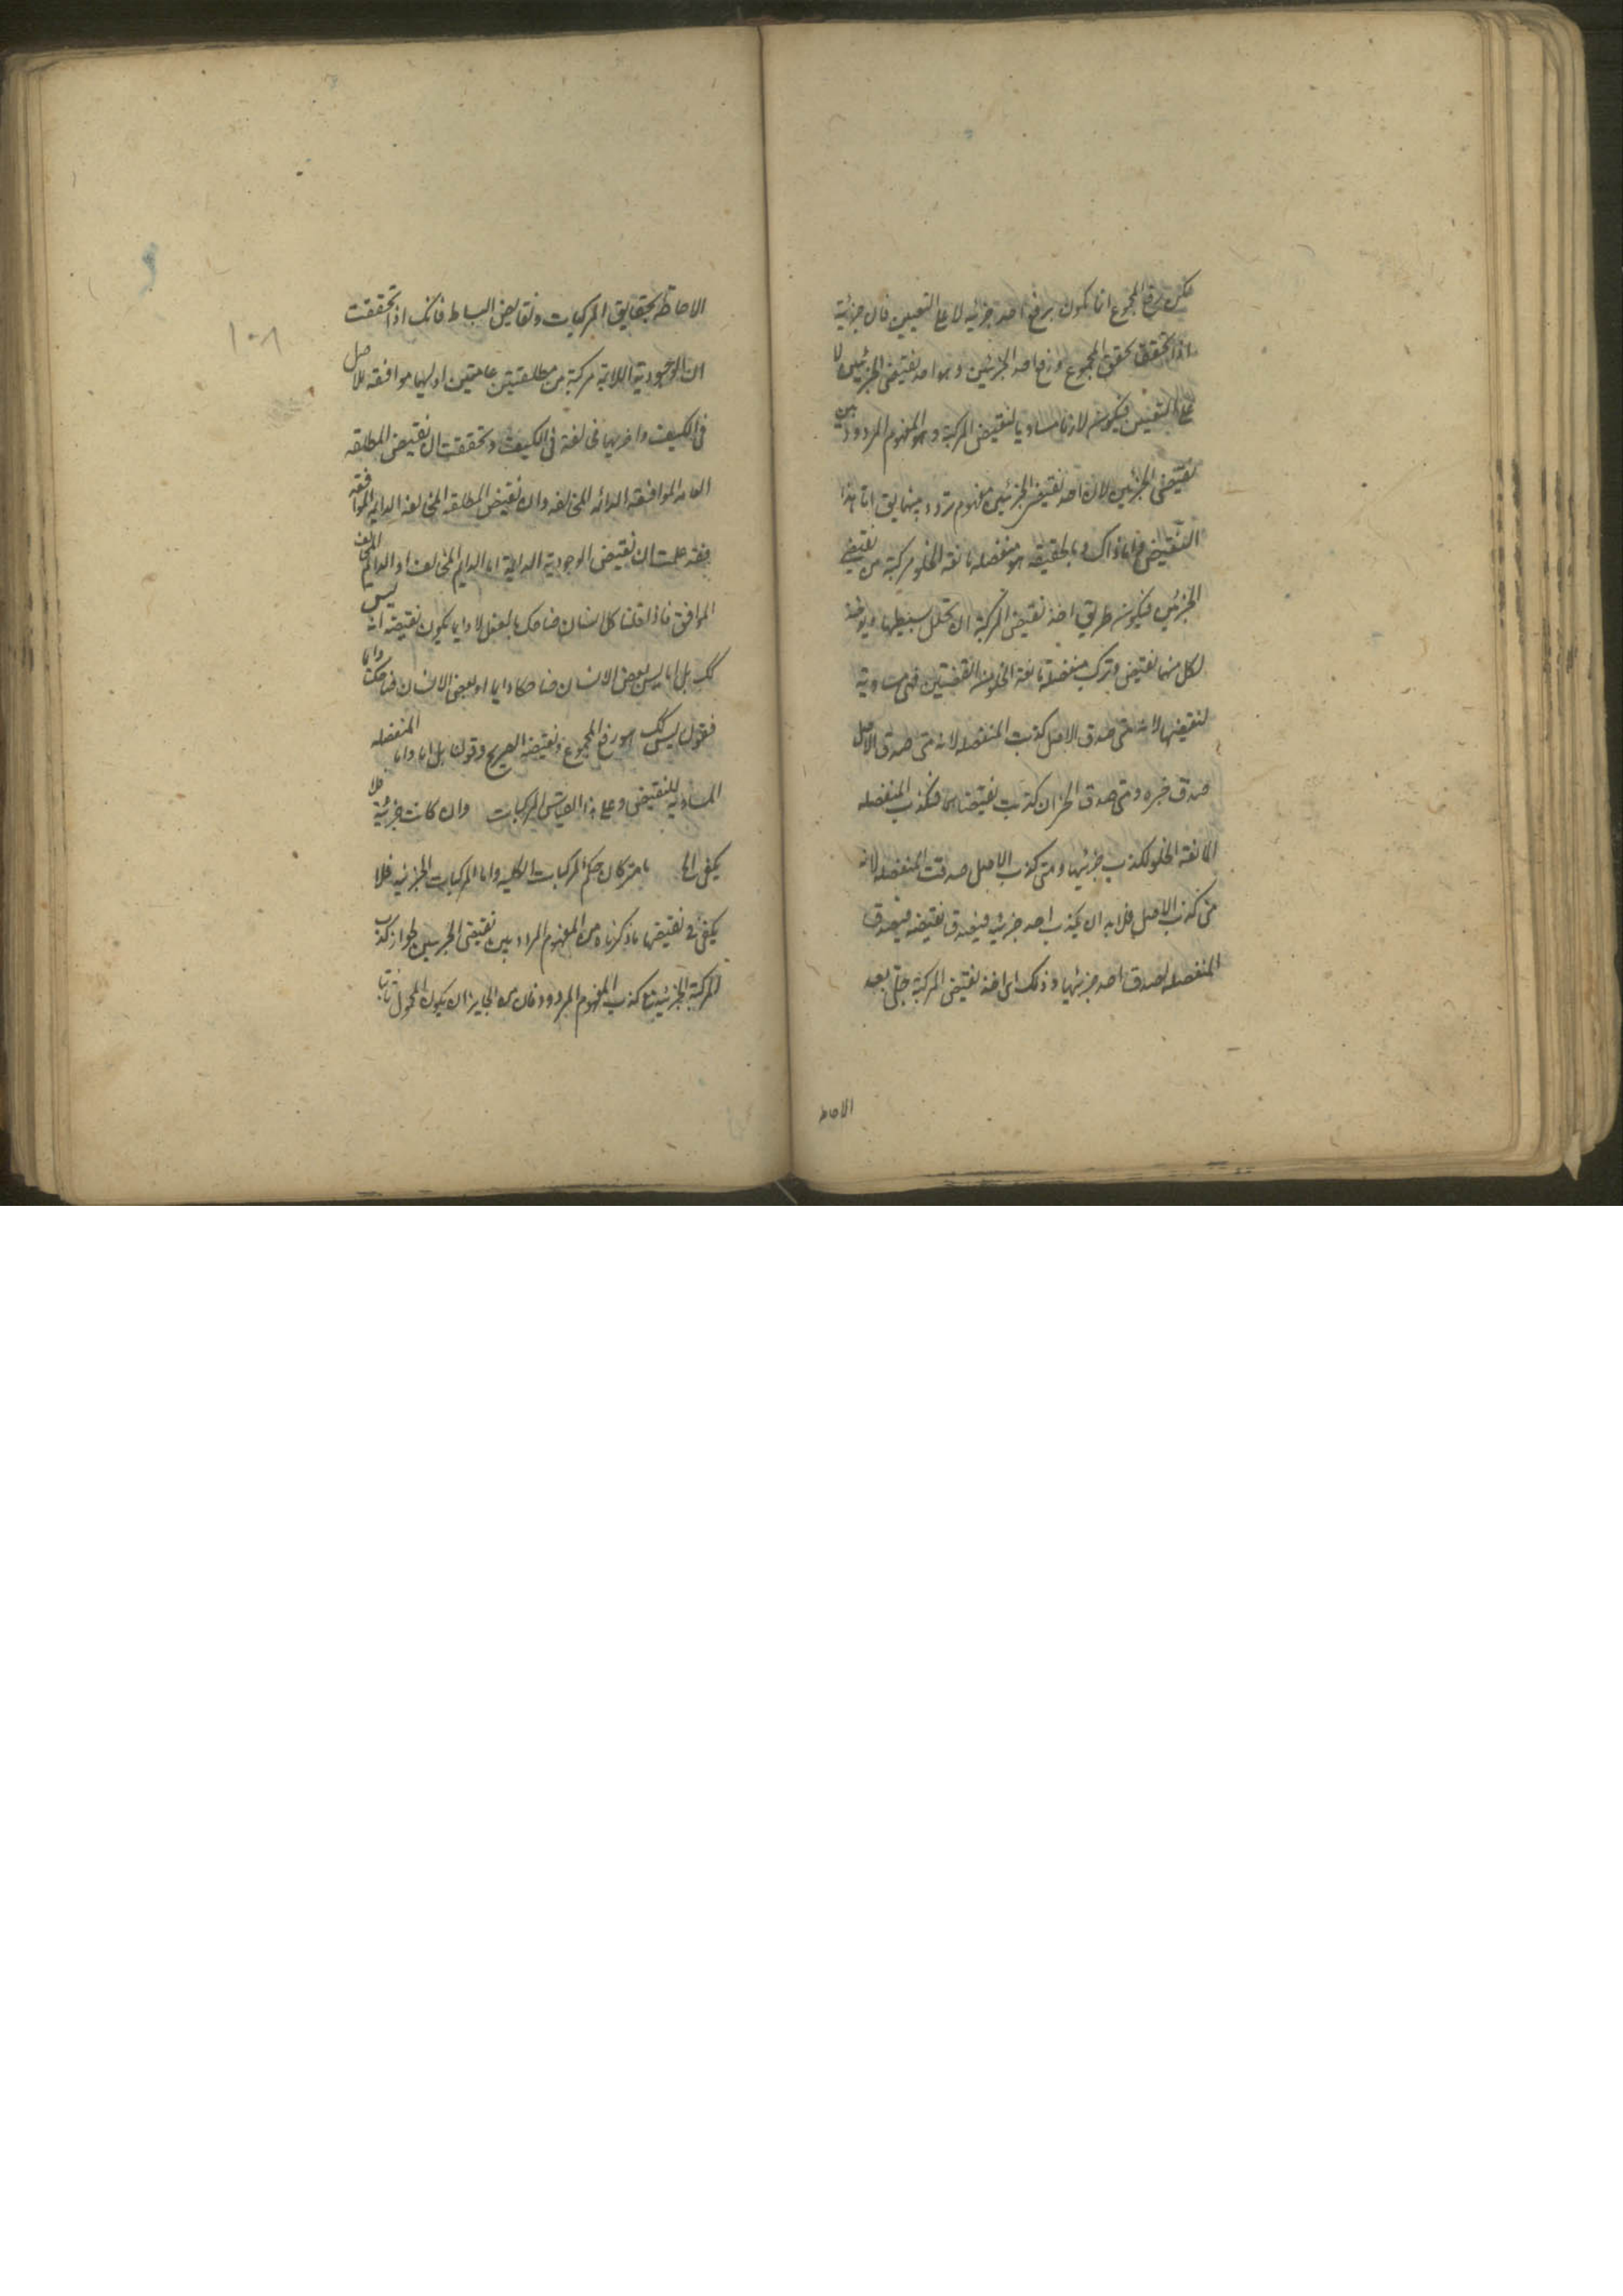 لكن رفع المجموع انما يكون برفع احد جزئيه لا على التعيين فان جزئيه
اذا تحققا تحقق المجموع ورفع احد الجزئين هو احد نقيضي الجزئين لا
على التعيين فيكون لازما مساويا لنقيض المركبة وهو المفهوم المردد بين
نقيضي الجزئين لان احد نقيضي الجزئين مفهوم مردد بينهما يق اما هذا
النقيض واما ذاك وبالحقيقه هو منفصله مانعة الخلو مركبة من نقيضي
الجزئين فيكون طريق اخذ نقيض المركبة ان تحلل بسيطيها ويوخذ
لكل منهما نقيض وتركب منفصلة مانعة الخلو من النقيضين فهى مساوية
لنقيضها لانه متى صدق الاصل كذبت المنفصله لانه متى صدق الاصل
صدق جزءه ومتى صدق الجزان كذبت نقيضاهما فتكذب المنفصله
المانعة الخلو لكذب جزئيها ومتى كذب الاصل صدقت المنفصله لانه
متى كذب الاصل فلابد ان يكذب احد جزئيه فيصدق نقيضه فيصدق
المنفصله لصدق احد جزئيها وذلك اى اخذ نقيض المركبة جلى بعد
الاحاط
١٠٨
الاحاطة بحقايق المركبات ونقايض البسايط فانك اذا تحققت
ان الوجودية اللادايمة مركبة من مطلقتين عامتين اوليهما موافقه للاصل
فى الكيف واخريهما مخالفة فى الكيف وتحققت ان نقيض المطلقه
العامه الموافقه الدائمه المخالفه وان نقيض المطلقه المخالفه الدايمه الموافقه
فقد علمت ان نقيض الوجودية اللادايمة اما الدايم المخالف او الدايم
الموافق فاذا قلنا كل انسان ضاحك بالفعل لا دايما يكون نقيضه انه ليس
كك بل اما ليس بعض الانسان ضاحكا دايما او بعض الانسان ضاحكا دايما
فقول ليس كك هو رفع المجموع ونقيضه الصريح وقولنا بل اما واما المنفصله
المساوية للنقيض وعلى هذا القياس المركبات وان كانت جزئية فلا
يكفى ما مر كان حكم المركبات الكليه واما المركبات الجزئيه فلا
يكفى فى نقيضها ما ذكرناه من المفهوم المردد بين نقيضى الجزئين لجواز كذب
المركبة الجزئية مع كذب المفهوم المردد فان من الجايز ان يكون المحمول ثابتا